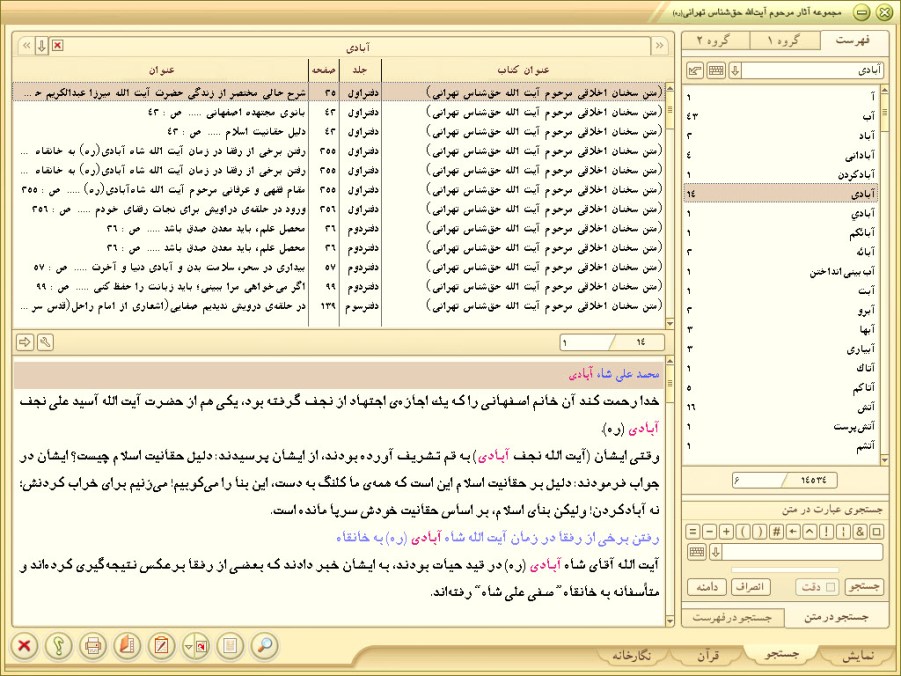 مجموعه آثار مرحوم آیت‌الله حق‌شناس تهرانی(ره)
فهرست
گروه ۱
گروه ۲
آبادی
آ ۱
آب ۴۳
آباد ۲
آبادانی ۴
آبادکردن ۱
آبادی ۱۴
آبادي ۱
آبانکم ۱
آبائه ۲
آب‌بینی‌انداختن ۱
آبت ۱
آبرو ۲
آبها ۳
آبیاری ۳
آتاك ۱
آتاکم ۵
آتش ۱۶
آتش‌پرست ۱
آتشم ۱
۱۴۵۳۴ / ۶
جستجوی عبارت در متن
= − + ( ) # ← ^ ! ¦ & □
جستجو
دقت
انصراف
دامنه
جستجو در متن
جستجو در فهرست
آبادی
عنوان کتاب جلد صفحه عنوان
(متن سخنان اخلاقی مرحوم آیت الله حق‌شناس تهرانی) دفتراول ۳۵ شرح حالی مختصر از زندگی حضرت آیت الله میرزا عبدالکریم ح ...
(متن سخنان اخلاقی مرحوم آیت الله حق‌شناس تهرانی) دفتراول ۴۳ بانوی مجتهده اصفهانی ..... ص : ۴۳
(متن سخنان اخلاقی مرحوم آیت الله حق‌شناس تهرانی) دفتراول ۴۳ دلیل حقانیت اسلام ..... ص : ۴۳
(متن سخنان اخلاقی مرحوم آیت الله حق‌شناس تهرانی) دفتراول ۳۵۵ رفتن برخی از رفقا در زمان آیت الله شاه آبادی(ره) به خانقاه ...
(متن سخنان اخلاقی مرحوم آیت الله حق‌شناس تهرانی) دفتراول ۳۵۵ رفتن برخی از رفقا در زمان آیت الله شاه آبادی(ره) به خانقاه ...
(متن سخنان اخلاقی مرحوم آیت الله حق‌شناس تهرانی) دفتراول ۳۵۵ مقام فقهی و عرفانی مرحوم آیت الله شاه‌آبادی(ره) ..... ص : ۳۵۵
(متن سخنان اخلاقی مرحوم آیت الله حق‌شناس تهرانی) دفتراول ۳۵۶ ورود در حلقه‌ی دراویش برای نجات رفقای خودم ..... ص : ۳۵۶
(متن سخنان اخلاقی مرحوم آیت الله حق‌شناس تهرانی) دفتردوم ۳۶ محصل علم، باید معدن صدق باشد ..... ص : ۳۶
(متن سخنان اخلاقی مرحوم آیت الله حق‌شناس تهرانی) دفتردوم ۳۶ محصل علم، باید معدن صدق باشد ..... ص : ۳۶
(متن سخنان اخلاقی مرحوم آیت الله حق‌شناس تهرانی) دفتردوم ۵۷ بیداری در سحر، سلامت بدن و آبادی دنیا و آخرت ..... ص : ۵۷
(متن سخنان اخلاقی مرحوم آیت الله حق‌شناس تهرانی) دفتردوم ۹۹ اگر می‌خواهی مرا ببینی؛ باید زبانت را حفظ کنی ..... ص : ۹۹
(متن سخنان اخلاقی مرحوم آیت الله حق‌شناس تهرانی) دفترسوم ۱۳۹ در حلقه‌ی درویش ندیدیم صفایی(اشعاری از امام راحل(قدس سر ...
۱۴ / ۱
محمد علی شاه آبادی
خدا رحمت کند آن خانم اصفهانی را که یك اجازه‌ی اجتهاد از نجف گرفته بود، یکی هم از حضرت آیت الله آسید علی نجف
آبادی (ره).
وقتی ایشان (آیت الله نجف آبادی) به قم تشریف آورده بودند، از ایشان پرسیدند: دلیل حقانیت اسلام چیست؟ ایشان در
جواب فرمودند: دلیل بر حقانیت اسلام این است که همه‌ی ما کلنگ به دست، این بنا را می‌کوبیم! می‌زنیم برای خراب کردنش؛
نه آبادکردن! ولیکن بنای اسلام، بر اساس حقانیت خودش سرپا مانده است.
رفتن برخی از رفقا در زمان آیت الله شاه آبادی (ره) به خانقاه
آیت الله آقای شاه آبادی (ره) در قید حیات بودند، به ایشان خبر دادند که بعضی از رفقا برعکس نتیجه‌گیری کرده‌اند و
متأسفانه به خانقاه "صفی علی شاه" رفته‌اند.
نمایش
جستجو
قرآن
نگارخانه